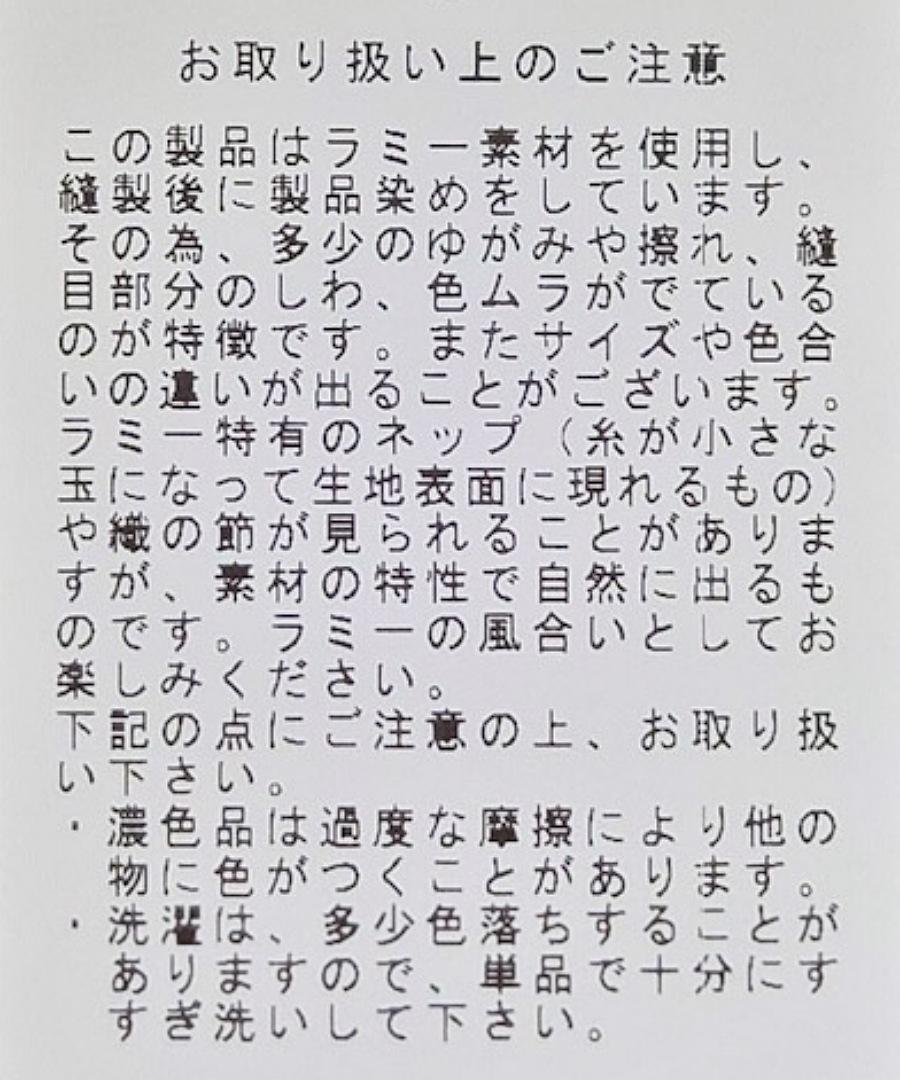 お取り扱い上のご注意
この製品はラミー素材を使用し、
縫製後に製品染めをしています。
その為、多少のゆがみや擦れ、縫
目部分のしわ、色ムラがでている
のが特徴です。またサイズや色合
いの違いが出ることがございます。
ラミー特有のネップ（糸が小さな
玉になって生地表面に現れるもの）
や織の節が見られることがありま
すが、素材の特性で自然に出るも
のです。ラミーの風合いとしてお
楽しみください。
下記の点にご注意の上、お取り扱
い下さい。
・濃色品は過度な摩擦により他の
物に色がつくことがあります。
・洗濯は、多少色落ちすることが
ありますので、単品で十分にす
すぎ洗いして下さい。